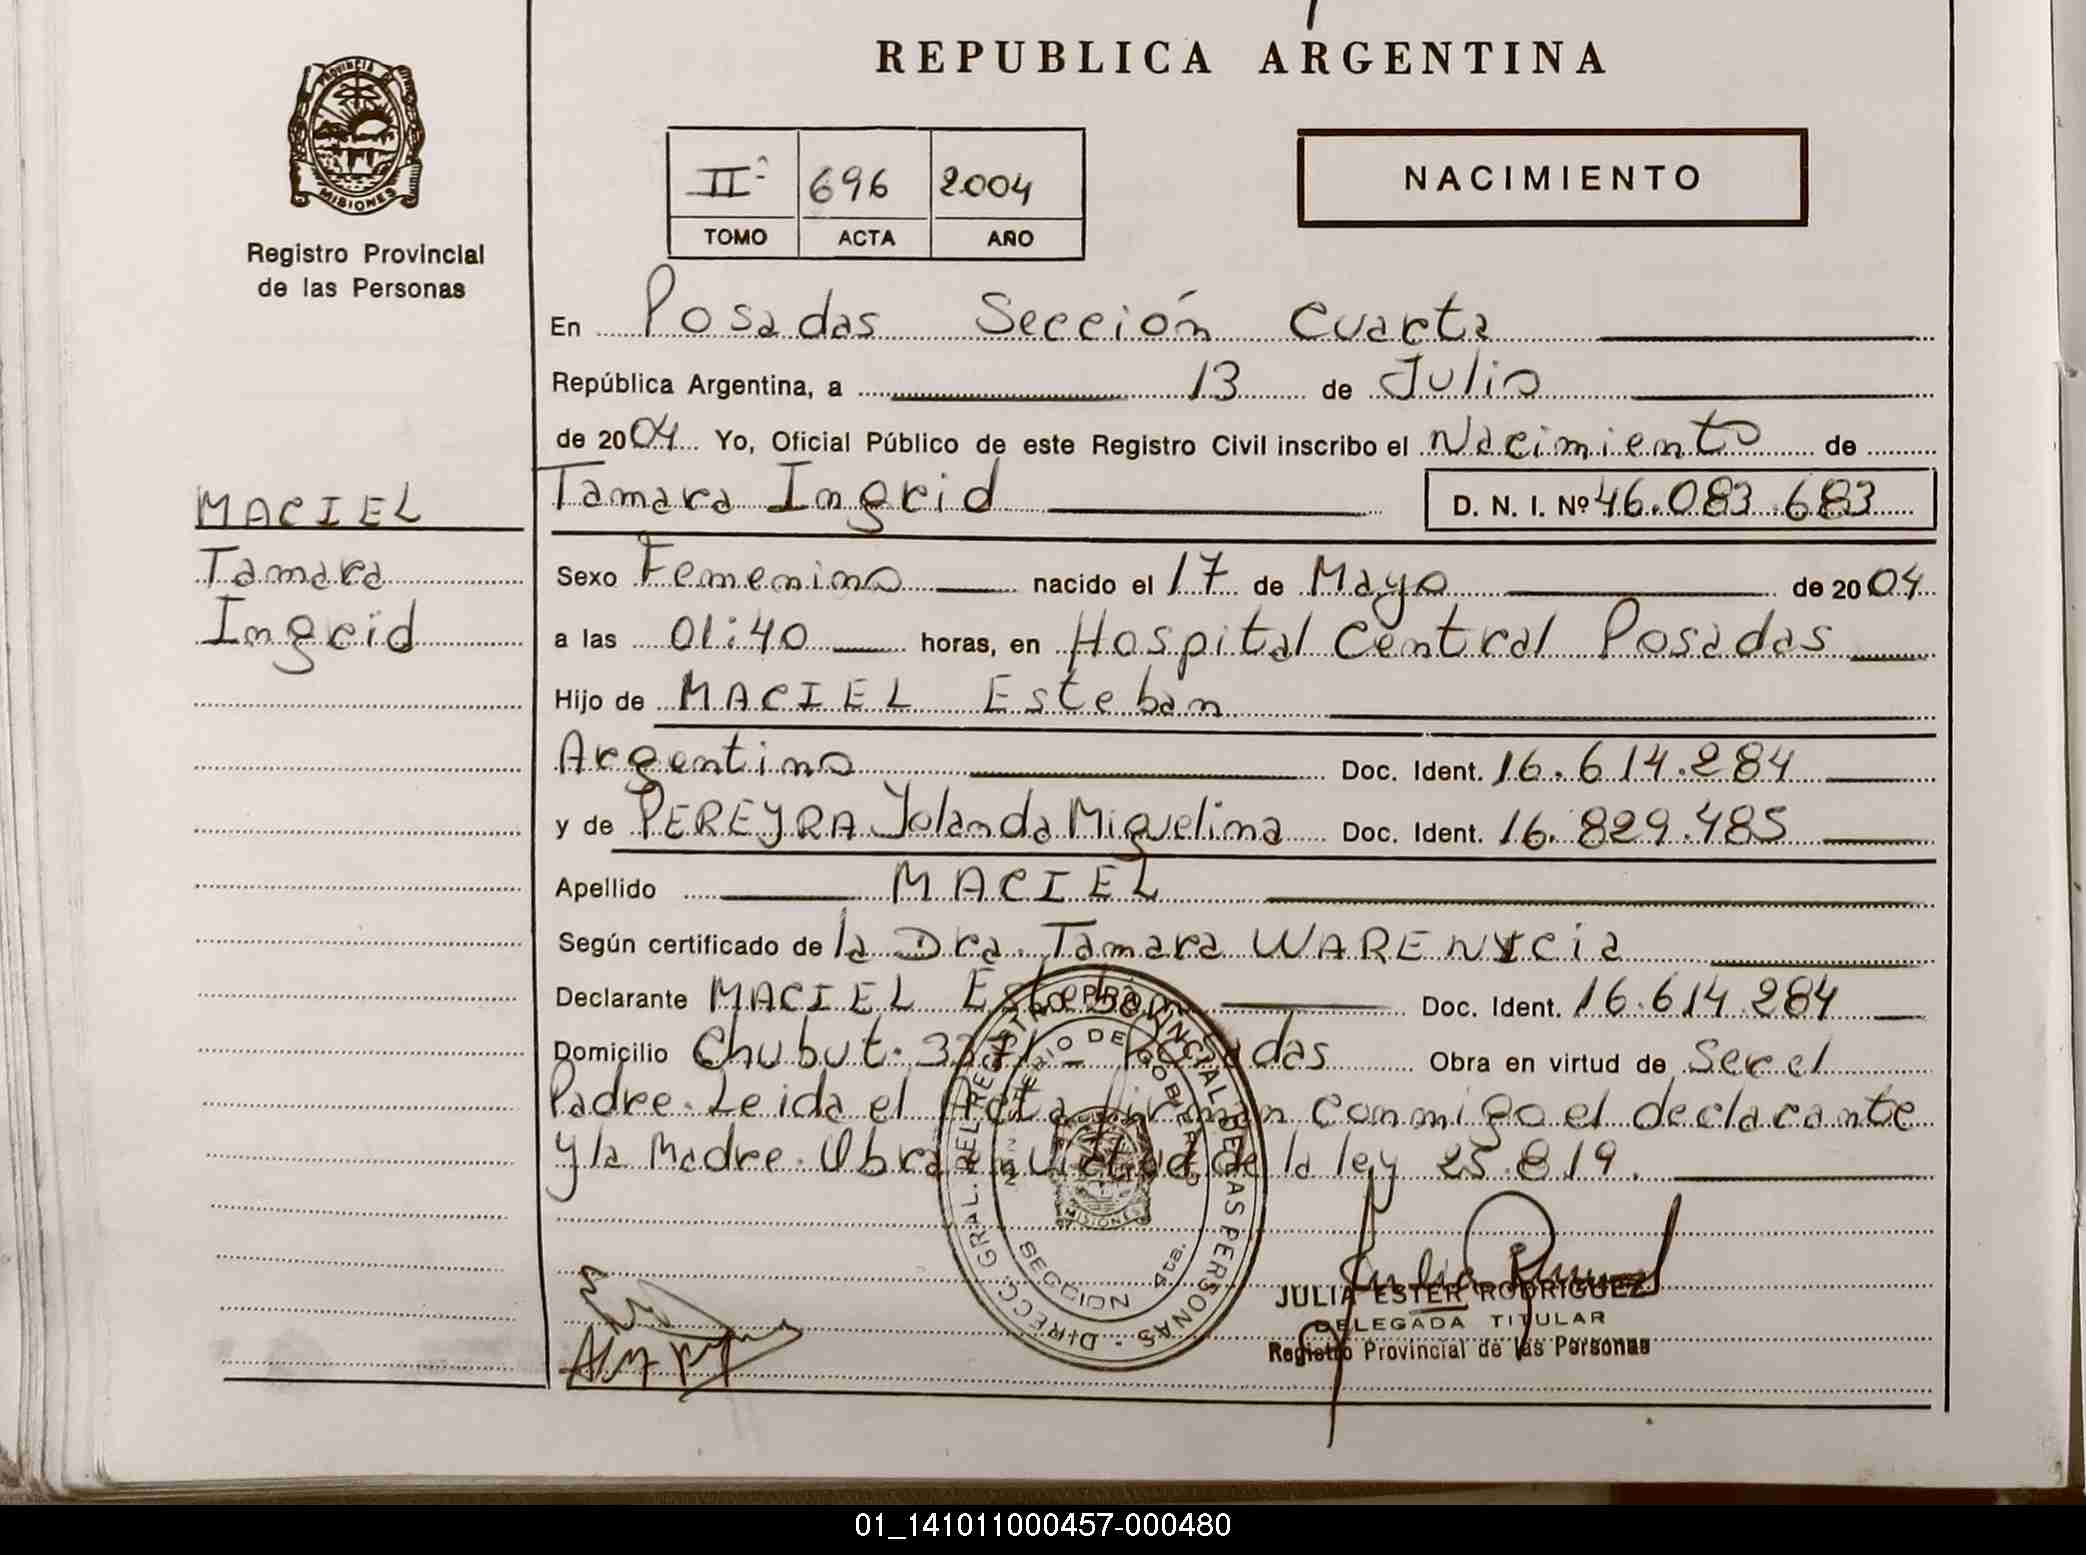 REPUBLICA ARGENTINA
PROVINCIA
MISIONES
Registro Provincial
de las Personas
IIº 696 2004
TOMO ACTA AÑO
NACIMIENTO
En Posadas Sección Cuarta
República Argentina, a 13 de Julio
de 2004 Yo, Oficial Público de este Registro Civil inscribo el Nacimiento de
Tamara Ingrid D. N. I. Nº 46.083.683
MACIEL
Tamara
Ingrid
Sexo Femenino nacido el 17 de Mayo de 2004
a las 01:40 horas, en Hospital Central Posadas
Hijo de MACIEL Esteban
Argentino Doc. Ident. 16.614.284
y de PEREYRA Yolanda Miguelina Doc. Ident. 16.829.485
Apellido MACIEL
Según certificado de la Dra. Tamara
Declarante MACIEL Esteban Doc. Ident. 16.614.284
Domicilio Chubut Posadas Obra en virtud de Ser el
Padre. Leida el Acta firman conmigo el declarante
y la Madre. Obra en virtud de la ley 25.819.
DIRECC. GRAL. DEL REGISTRO PROVINCIAL DE LAS PERSONAS
MINISTERIO DE GOBIERNO
MISIONES
SECCION 4ta.
JULIA ESTER RODRIGUEZ
DELEGADA TITULAR
Registro Provincial de las Personas
01_141011000457-000480